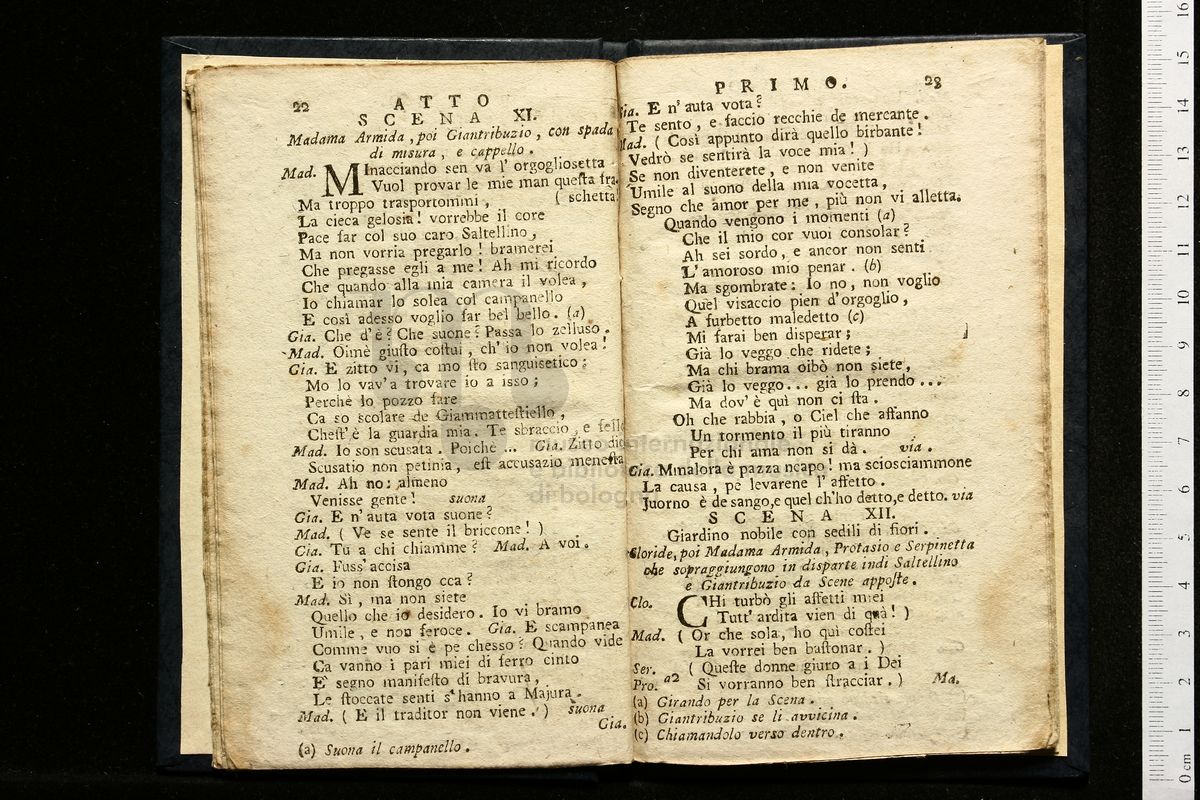 22 ATTO
SCENA XI.
Madama Armida, poi Giantribuzio, con spada
di misura, e cappello.
Mad. MInacciando sen va l' orgogliosetta
Vuol provar le mie man questa fra-
Ma troppo trasportommi, ( schetta
La cieca gelosia! vorrebbe il core
Pace far col suo caro Saltellino,
Ma non vorria pregarlo! bramerei
Che pregasse egli a me! Ah mi ricordo
Che quando alla mia camera il volea,
Io chiamar lo solea col campanello
E così adesso voglio far bel bello. (a)
Gia. Che d'è? Che suone? Passa lo zelluso.
Mad. Oimè giusto costui, ch' io non volea!
Gia. E zitto vi, ca mo sto sanguisetico;
Mo lo vav'a trovare io a isso;
Perchè lo pozzo fare
Ca so scolare de Giammattestiello,
Chest'è la guardia mia. Te sbraccio, e fello
Mad. Io son scusata. Poichè ... Gia. Zitto dic
Scusatio non petinia, est accusazio menesta
Mad. Ah no: almeno
Venisse gente! suona
Gia. E n' auta vota suone?
Mad. ( Ve se sente il briccone! )
Gia. Tu a chi chiamme? Mad. A voi.
Gia. Fuss' accisa
E io non stongo cca?
Mad. Sì, ma non siete
Quello che io desidero. Io vi bramo
Umile, e non feroce. Gia. E scampanea
Comme vuo si è pe chesso? Quando vide
Ca vanno i pari miei di ferro cinto
E' segno manifesto di bravura,
Le stoccate senti s' hanno a Majura.
Mad. ( E il traditor non viene. ) suona
Gia.
(a) Suona il campanello.
PRIMO. 23
Gia. E n' auta vota?
Te sento, e faccio recchie de mercante.
Mad. ( Così appunto dirà quello birbante!
Vedrò se sentirà la voce mia! )
Se non diventerete, e non venite
Umile al suono della mia vocetta,
Segno che amor per me, più non vi alletta.
Quando vengono i momenti (a)
Che il mio cor vuoi consolar?
Ah sei sordo, e ancor non senti
L' amoroso mio penar. (b)
Ma sgombrate: Io no, non voglio
Quel visaccio pien d'orgoglio,
A furbetto maledetto (c)
Mi farai ben disperar;
Già lo veggo che ridete;
Ma chi brama oibò non siete,
Già lo veggo... già lo prendo ...
Ma dov' è quì non ci sta.
Oh che rabbia, o Ciel che affanno
Un tormento il più tiranno
Per chi ama non si dà. via.
Gia. Mmalora è pazza ncapo! ma sciosciammone
La causa, pe levarene l' affetto.
Juorno è de sango, e quel ch'ho detto, e detto. via
SCENA XII.
Giardino nobile con sedili di fiori.
Cloride, poi Madama Armida, Protasio e Serpinetta
che sopraggiungono in disparte indi Saltellino
e Giantribuzio da Scene apposte.
Clo. CHi turbò gli affetti miei
Tutt' ardita vien di quà! )
Mad. ( Or che sola, ho quì costei
La vorrei ben bastonar. )
Ser. ( Queste donne giuro a i Dei
Pro. a2 Si vorranno ben stracciar. ) Ma.
(a) Girando per la Scena.
(b) Giantribuzio se li avvicina.
(c) Chiamandolo verso dentro.
museo internazionale
biblio
di bologn
0 cm 1 2 3 4 5 6 7 8 9 10 11 12 13 14 15 16